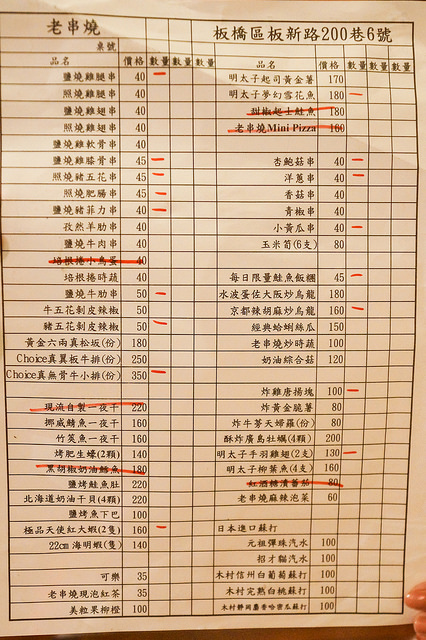 老串燒
板橋區板新路200巷6號
桌號
品名 價格 數量 數量 數量
鹽燒雞腿串 40
照燒雞腿串 40
鹽燒雞翅串 40
照燒雞翅串 40
鹽燒雞軟骨串 40
鹽燒雞膝骨串 45
照燒豬五花串 45
照燒肥腸串 45
鹽燒豬菲力串 40
孜然羊肋串 40
鹽燒牛肉串 40
培根捲小鳥蛋 40
培根捲時蔬 40
鹽燒牛肋串 50
牛五花剝皮辣椒 50
豬五花剝皮辣椒 50
黃金六兩真松坂(份) 180
Choice真翼板牛排(份) 250
Choice真無骨牛小排(份) 350
現流自製一夜干 220
挪威鯖魚一夜干 160
竹筴魚一夜干 160
烤肥生蠔(2顆) 140
黑胡椒奶油鱈魚 180
鹽烤鮭魚肚 220
北海道奶油干貝(4顆) 220
鹽烤魚下巴 100
極品天使紅大蝦(2隻) 160
22cm海明蝦(隻) 140
可樂 35
老串燒現泡紅茶 35
美粒果柳橙 100
品名 價格 數量 數量 數量
明太子起司黃金薯 170
明太子夢幻雪花魚 180
甜椒起士鮭魚 180
老串燒Mini Pizza 160
杏鮑菇串 40
洋蔥串 40
香菇串 40
青椒串 40
小黃瓜串 40
玉米筍(6支) 80
每日限量鮭魚飯糰 45
水波蛋佐大阪炒烏龍 180
京都辣胡麻炒烏龍 160
經典蛤蜊絲瓜 150
老串燒炒時蔬 100
奶油綜合菇 120
炸雞唐揚塊 100
炸黃金脆薯 80
炸牛蒡天婦羅(份) 80
酥炸廣島牡蠣(4顆) 200
明太子手羽雞翅(2支) 130
明太子柳葉魚(4支) 160
紅酒糖漬蕃茄 80
老串燒麻辣泡菜 60
日本進口蘇打
元祖彈珠汽水 100
招才貓汽水 100
木村信州白葡萄蘇打 100
木村完熟白桃蘇打 100
木村靜岡麝香哈密瓜蘇打 100